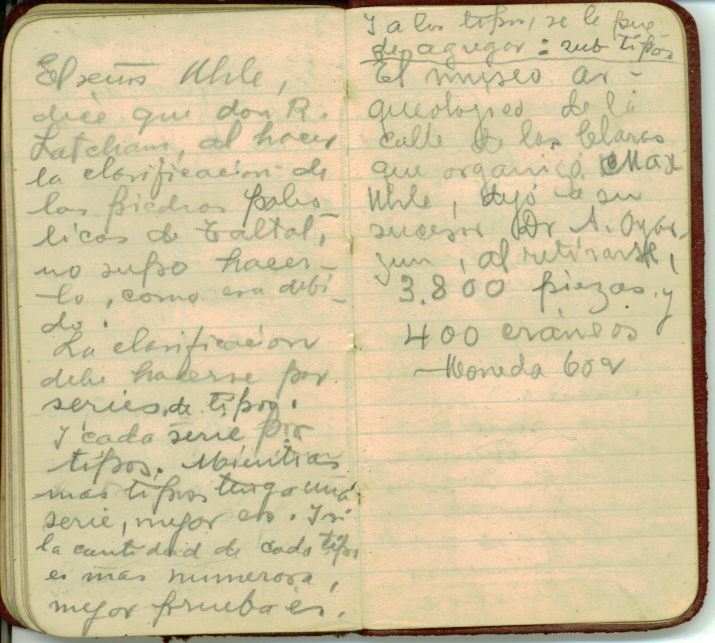 El señor Uhle,
dice que don R.
Latcham, al hacer
la clasificacion de
las piedras paleo-
liticas de Taltal,
no supo hacer-
lo, como era debi-
do.
La clasificacion
debe hacerse por
series, de tipos.
I cada serie, por
tipos. Mientras
mas tipos tenga una
serie, mejor es. I si
la cantidad de cada tipo
es mas numerosa,
mejor prueba es.
I a los tipos, se le pue-
de agregar: sub tipos
El museo ar-
queologico de la
calle de las Claras
que organizó Max
Uhle, dejó a su
sucesor Dr A. Oyar-
zun, al retirarse,
3.800 piezas, y
400 cráneos
—Moneda 602